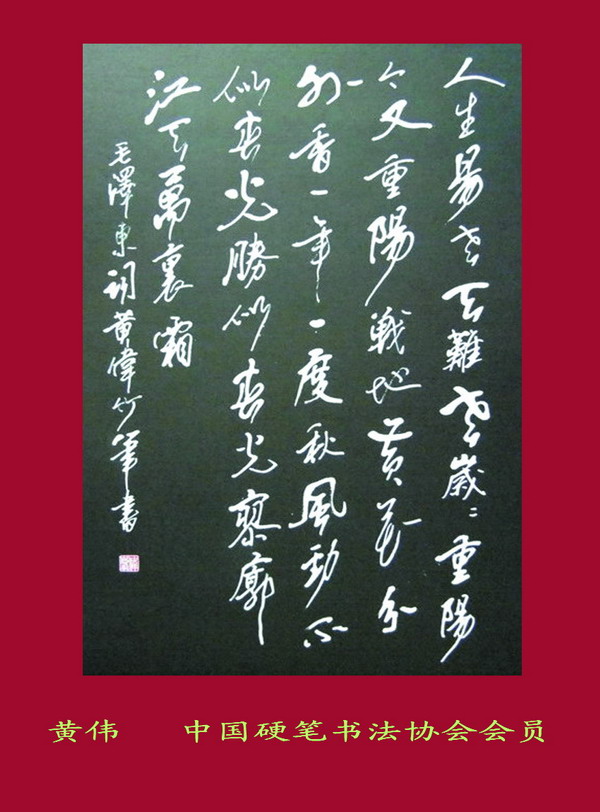 人生易老天難老歲〻重陽
今又重陽戰地黃花分
外香一年一度秋風勁不
似春光勝似春光寥廓
江天萬裏霜
毛澤東詞黃偉竹筆書
黄伟 中国硬笔书法协会会员